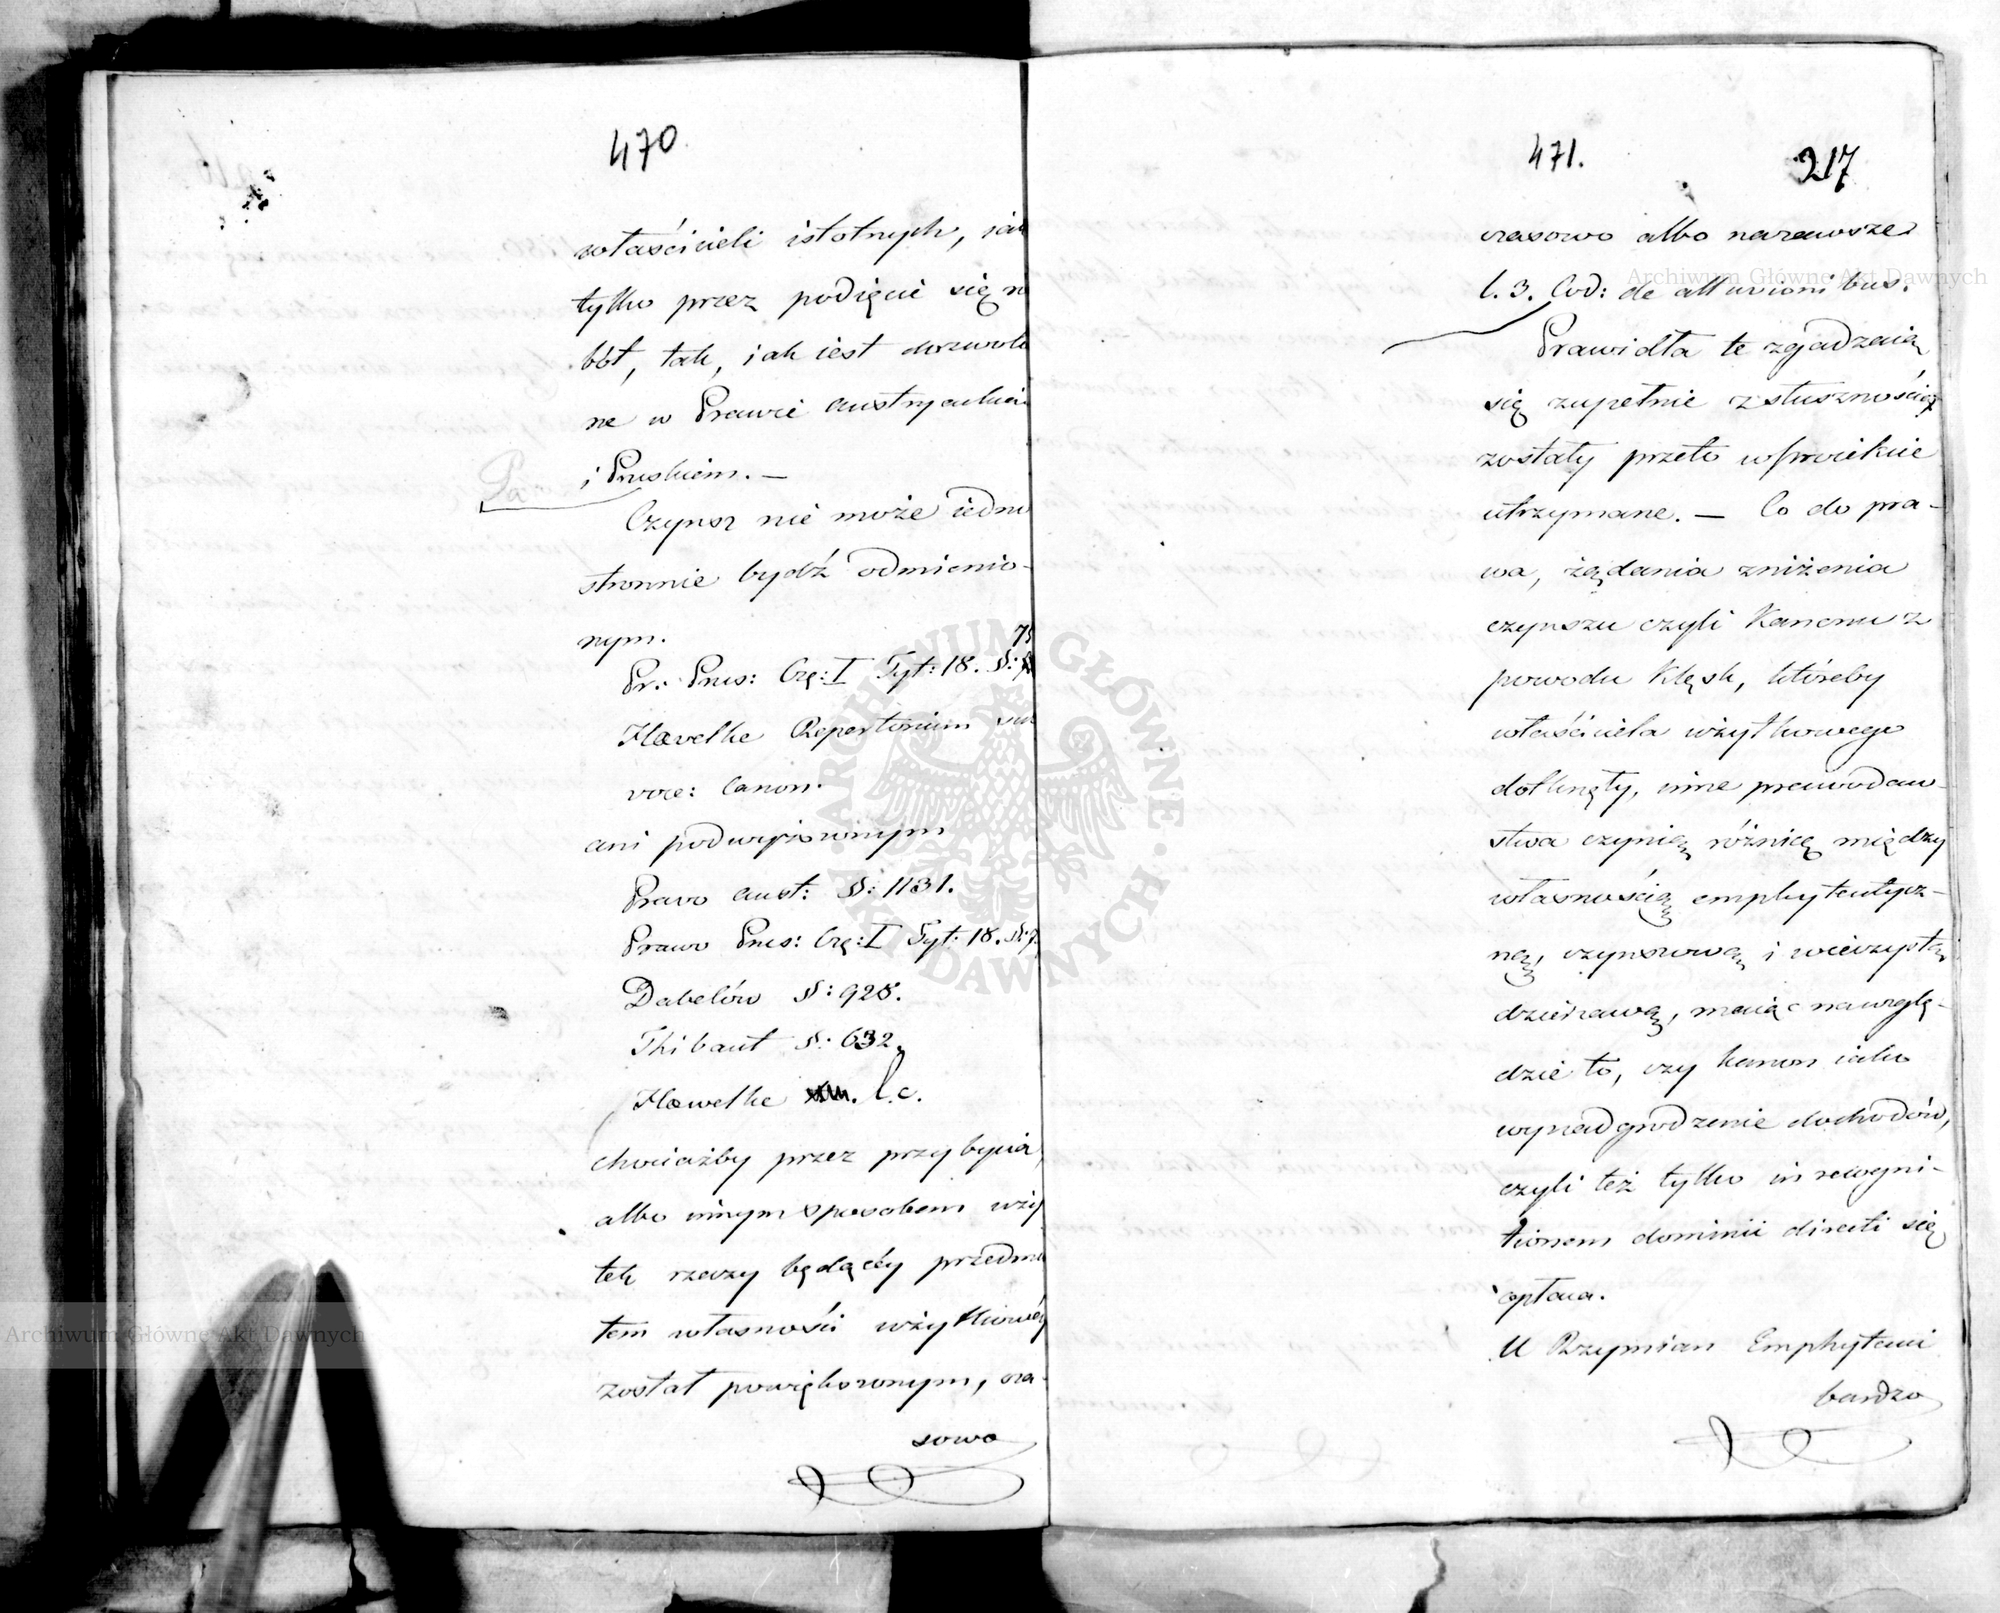 470
właścicieli istotnych, jak
tylko przez podięcie się ro
bót, tak, jak iest dozwolo
ne w Prawie austryackiem
i Pruskiem. —
Czynsz nie może iedno
stronnie bydź odmienio-
nym.
Pr: Prus: Czę: I Tyt: 18. §:
Klavelke Repertorium sub
voce: Canon.
ani podwyższonym
Prawo aust: §: 1131.
Prawo Prus: Czę: I Tyt: 18. §: 7
Dabelów §: 928.
Thibaut §: 632.
Klewelke l. c.
chociażby przez przybycia,
albo innym sposobem uży
tek rzeczy będącéy przedmio
tem własności użytkowéy
został powiększonym, cza-
sowo
471. 217
czasowo albo nazawsze
l. 3. Cod: de alluvionibus.
Prawidła te zgadzaią
się zupełnie z słusznością
zostały przeto w proiekcie
utrzymane. — Co do pra-
wa, żądania zniżenia
czynszu czyli Kanonu z
powodu Klęsk, któreby
właściciela użytkowego
dotknęły, inne prawodaw-
stwa czynią różnicę między
własnością emphyteutycz-
ną, czynszową i wieczystą
dzierżawą, maiąc na wzglę-
dzie to, czy kanon iako
wynadgrodzenie dochodów,
czyli też tylko in recogni-
tionem dominii directi się
opłaca.
U Rzymian Emphyteuci
bardzo
ARCHIWUM GŁÓWNE AKT DAWNYCH
Archiwum Główne Akt Dawnych
Archiwum Główne Akt Dawnych